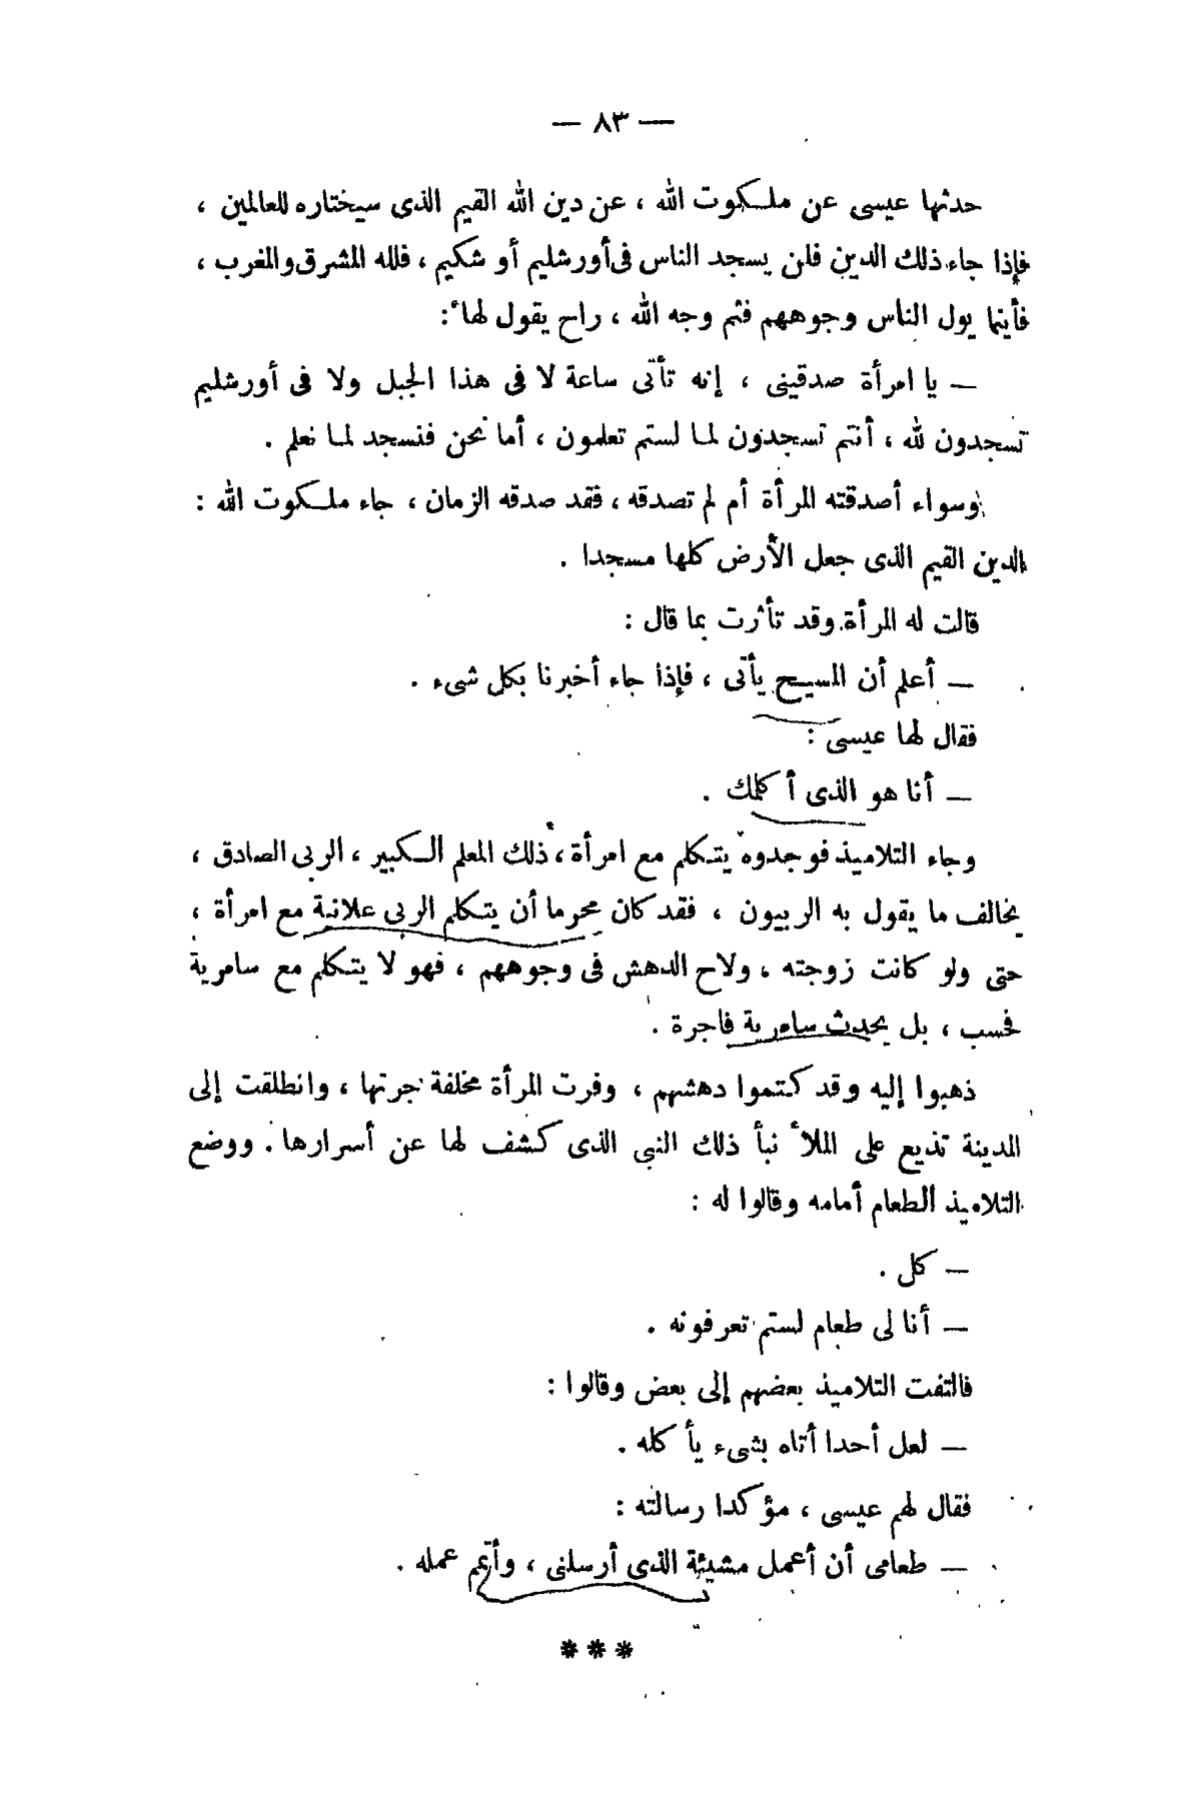 — ٨٣ —
حدثها عيسى عن ملكوت الله ، عن دين الله القيم الذى سيختاره للعالمين ،
فإذا جاء ذلك الدين فلن يسجد الناس فى أورشليم أو شكيم ، فلله المشرق والمغرب ،
فأينما يول الناس وجوههم فثم وجه الله ، راح يقول لها :
— يا امرأة صدقينى ، إنه تأتى ساعة لا فى هذا الجبل ولا فى أورشليم
تسجدون لله ، أنتم تسجدون لما لستم تعلمون ، أما نحن فنسجد لما نعلم .
وسواء أصدقته المرأة أم لم تصدقه ، فقد صدقه الزمان ، جاء ملكوت الله :
الدين القيم الذى جعل الأرض كلها مسجدا .
قالت له المرأة وقد تأثرت بما قال :
— أعلم أن المسيح يأتى ، فإذا جاء أخبرنا بكل شىء .
فقال لها عيسى :
— أنا هو الذى أكلمك .
وجاء التلاميذ فوجدوه يتكلم مع امرأة ، ذلك المعلم الكبير ، الربى الصادق ،
يخالف ما يقول به الربيون ، فقد كان محرما أن يتكلم الربى علانية مع امرأة ،
حتى ولو كانت زوجته ، ولاح الدهش فى وجوههم ، فهو لا يتكلم مع سامرية
فحسب ، بل يحدث سامرية فاجرة .
ذهبوا إليه وقد كتموا دهشهم ، وفرت المرأة مخلفة جرتها ، وانطلقت إلى
المدينة تذيع على الملأ نبأ ذلك النبى الذى كشف لها عن أسرارها . ووضع
التلاميذ الطعام أمامه وقالوا له :
— كل .
— أنا لى طعام لستم تعرفونه .
فالتفت التلاميذ بعضهم إلى بعض وقالوا :
— لعل أحدا أتاه بشىء يأكله .
فقال لهم عيسى ، مؤكدا رسالته :
— طعامى أن أعمل مشيئة الذى أرسلنى ، وأتمم عمله .
* * *